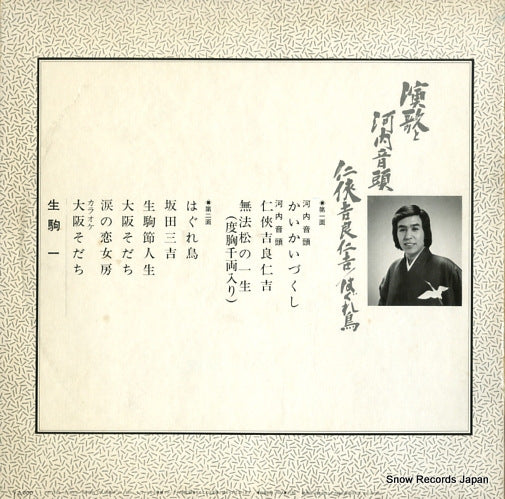 演歌と
河内音頭
仁侠吉良仁吉/はぐれ鳥
★第一面
河内音頭
かいかいづくし
河内音頭
仁侠吉良仁吉
無法松の一生
(度胸千両入り)
★第二面
はぐれ鳥
坂田三吉
生駒節人生
大阪そだち
涙の恋女房
カラオケ
大阪そだち
生駒一
Snow Records Japan